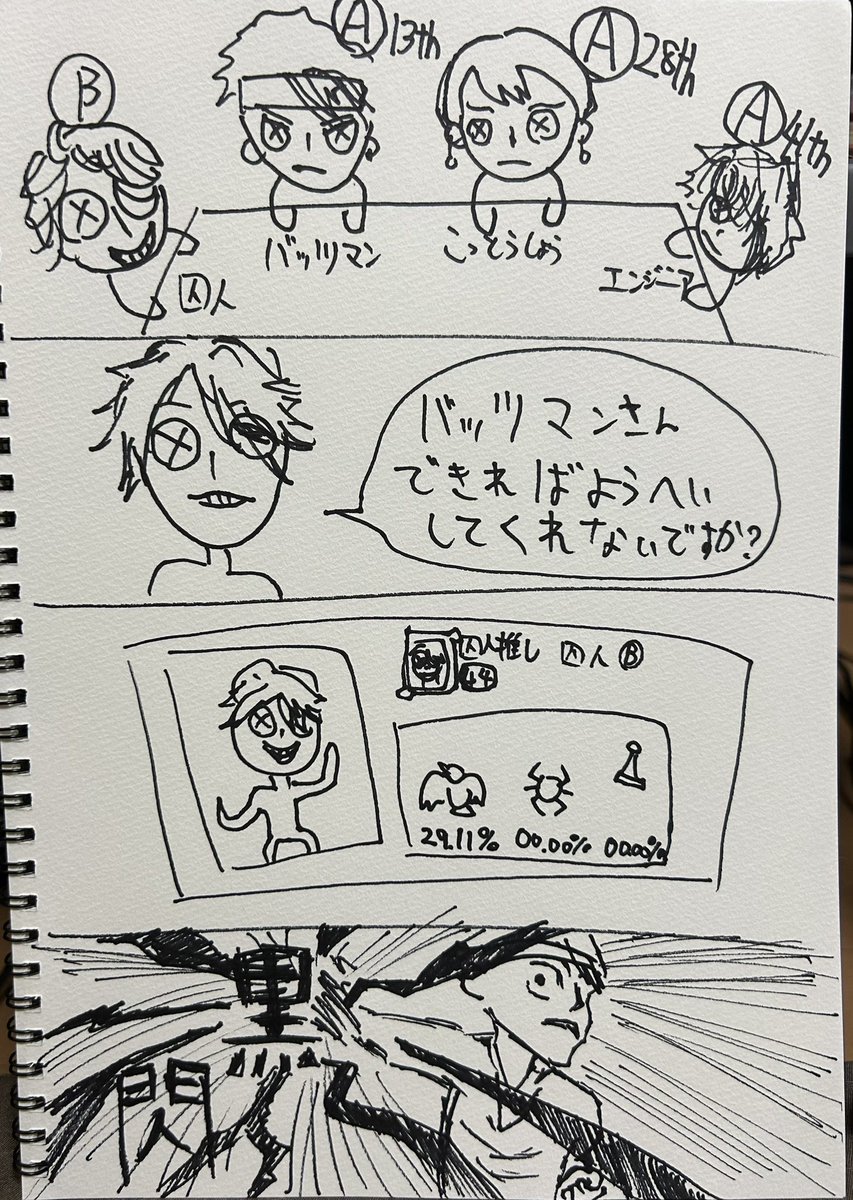 B
A 13th
A 28th
A 41th
囚人
バッツマン
こっとうしょう
エンジニア
バッツマンさん
できればようへい
してくれないですか?
囚人推し 囚人 B
44
29.11% 00.00% 00.00%
黒
閃